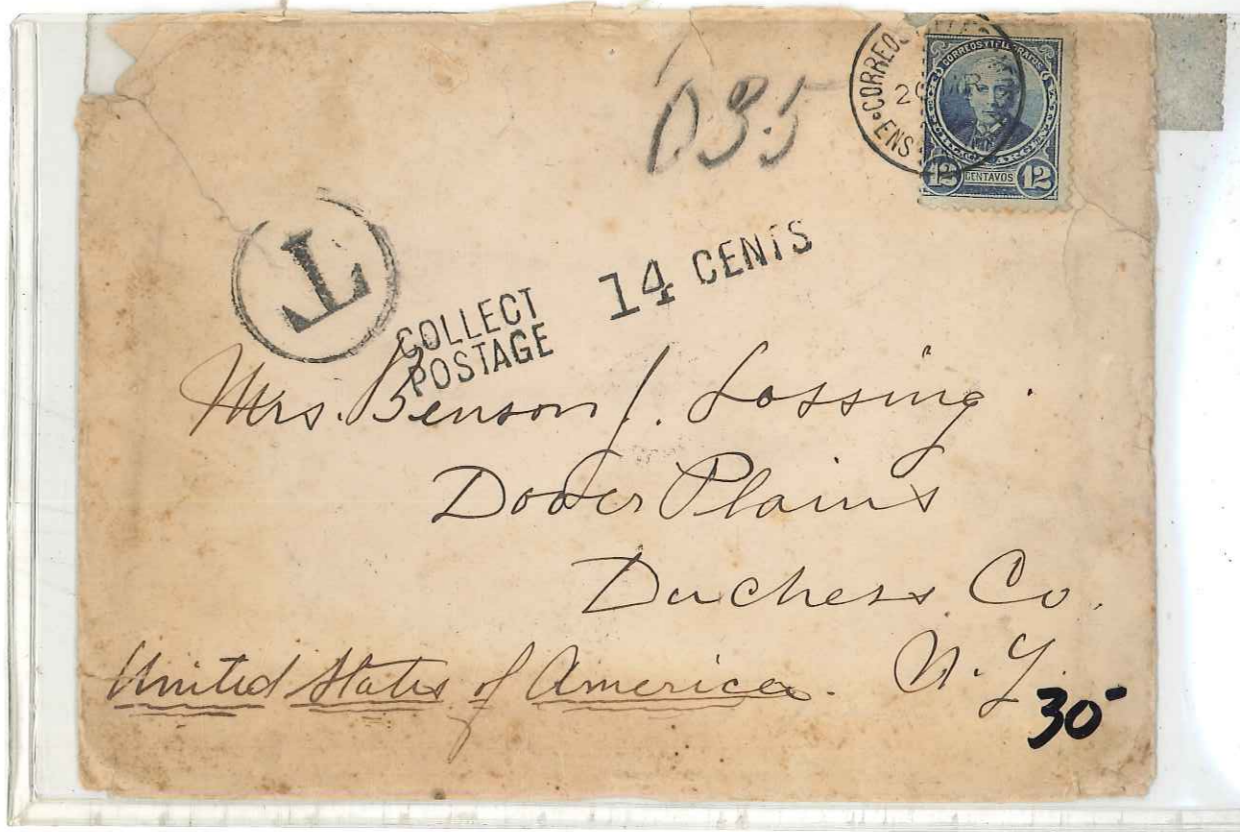 CORREOS
ENS
CORREOS Y TELEGRAFOS
12 CENTAVOS 12
035
T
COLLECT
POSTAGE
14 CENTS
Mrs. Benson J. Lossing.
Dover Plains
Duchess Co.
N. Y.
United States of America.
30-